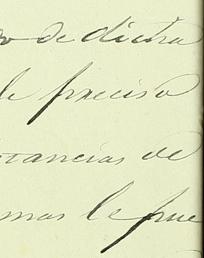 o de dicha
le preciso
stancias de
mas le fue